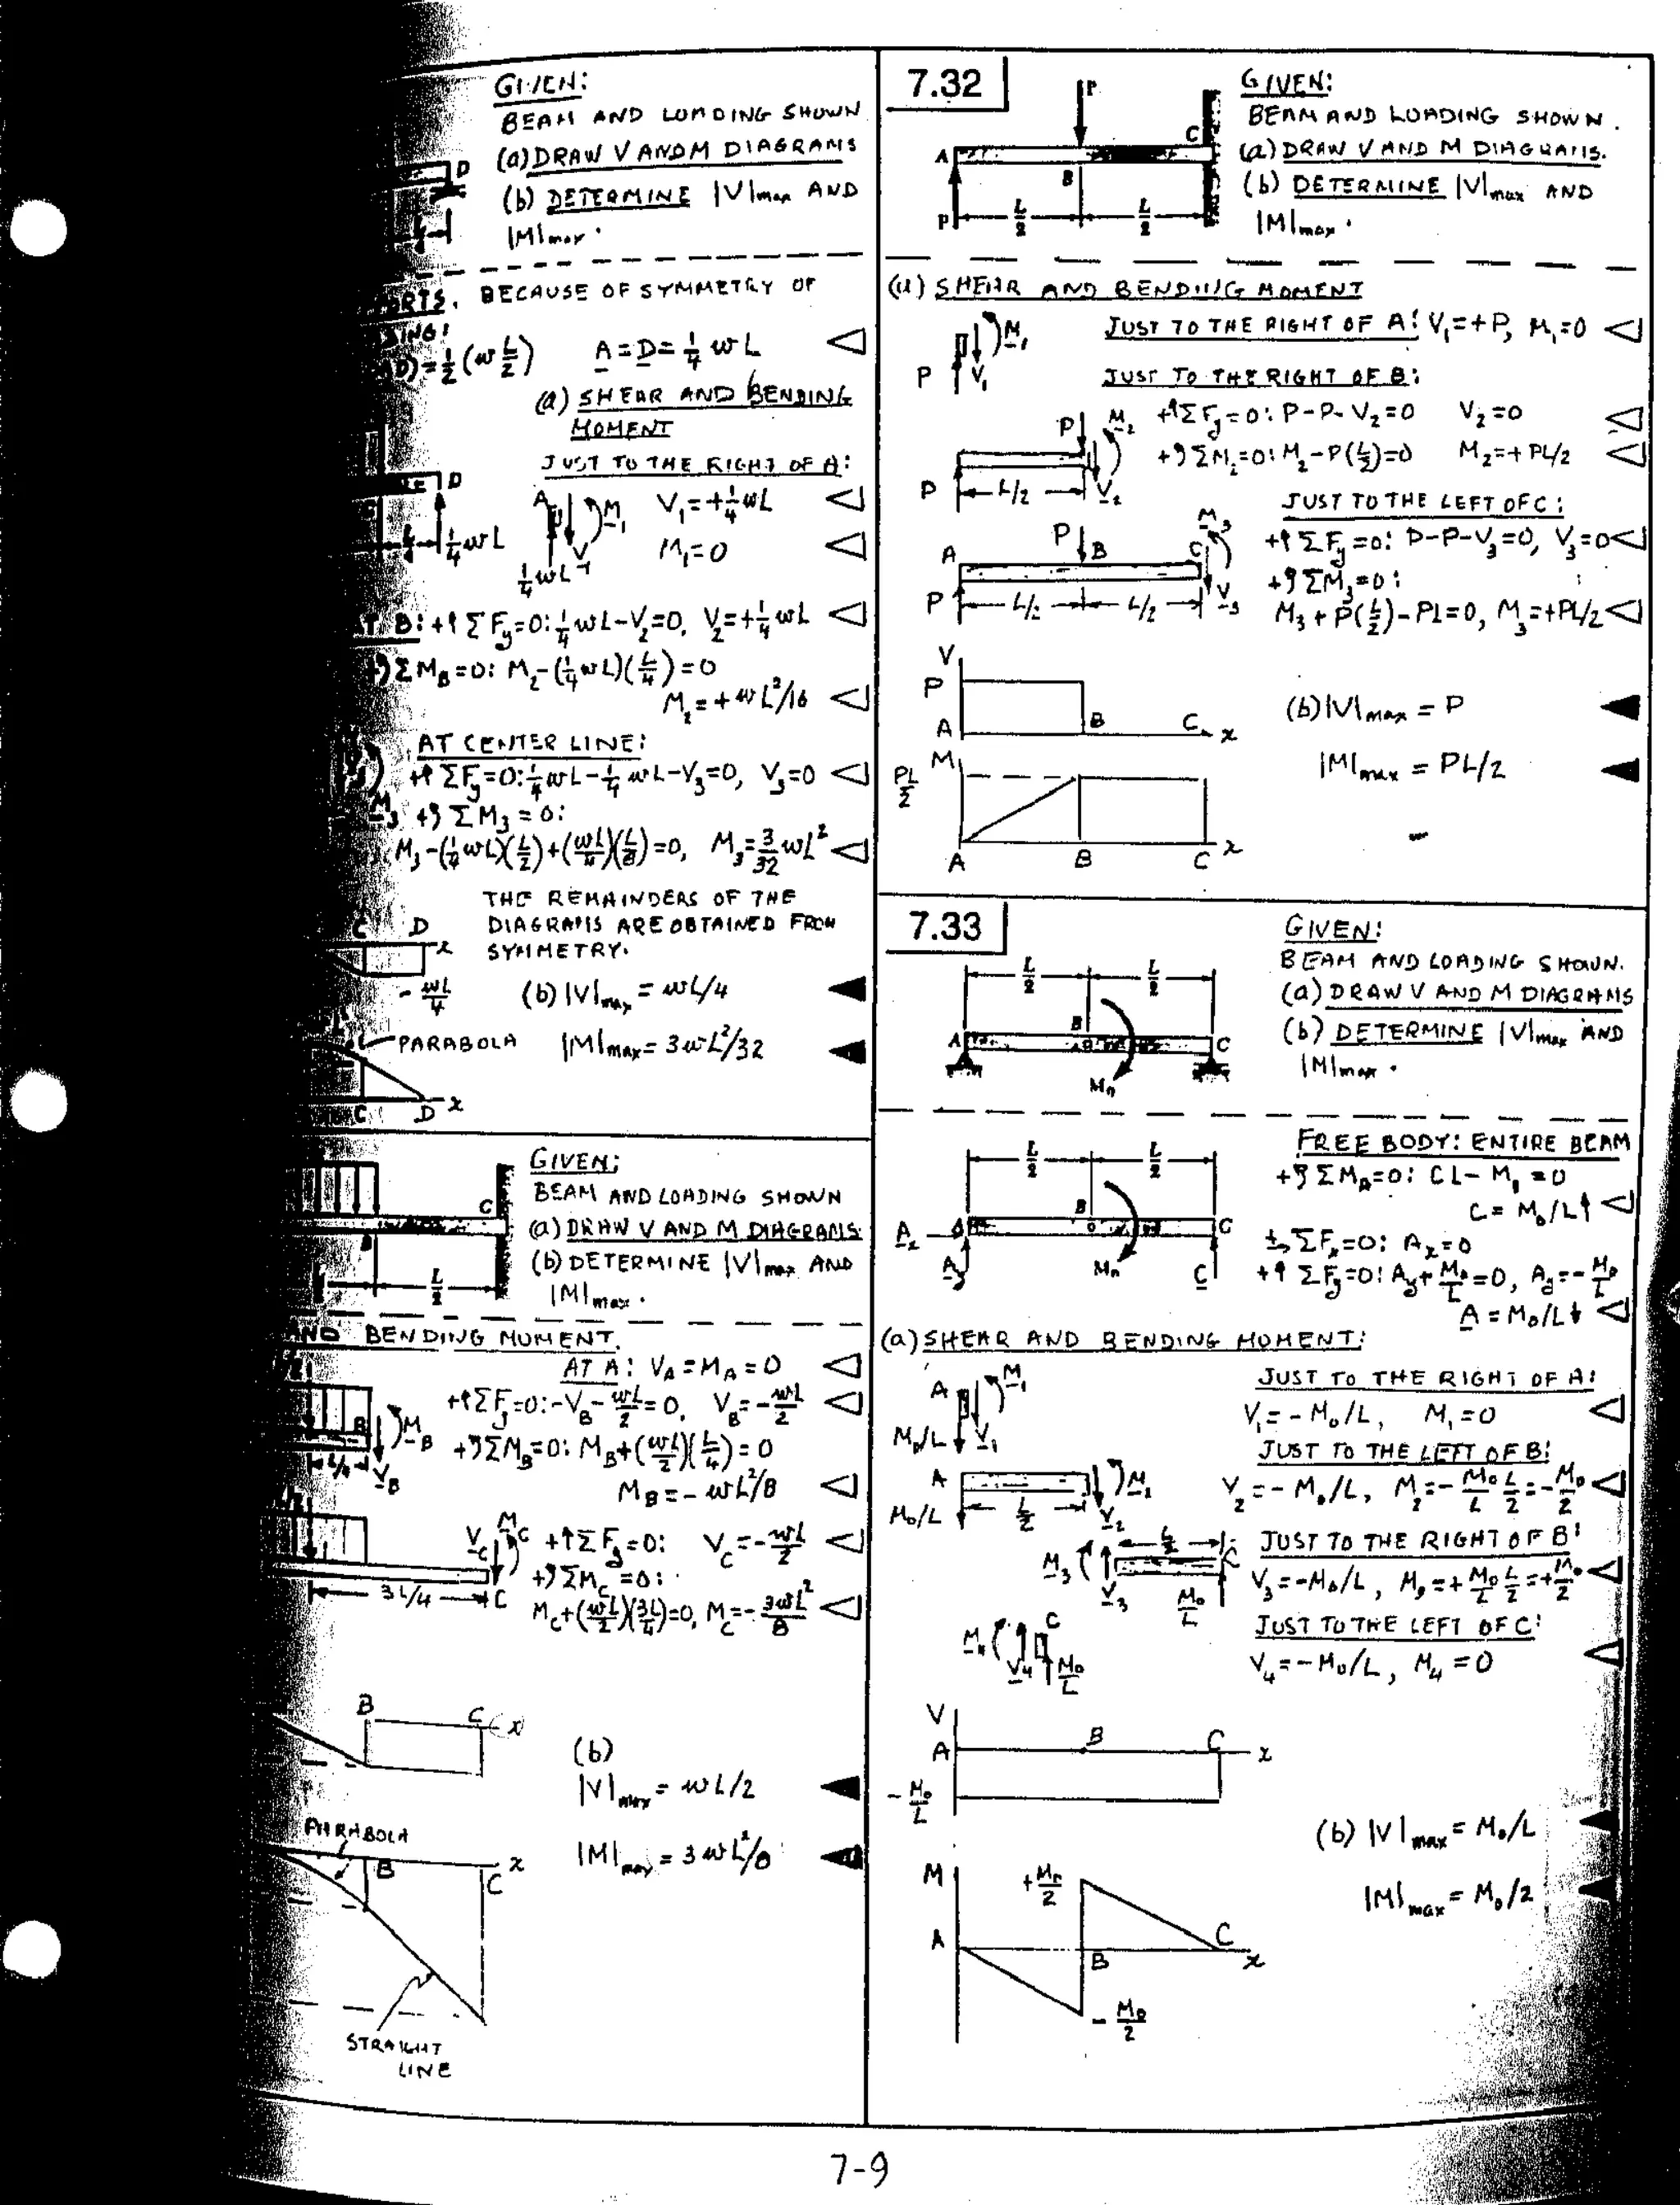 GIVEN:
BEAM AND LOADING SHOWN
(a) DRAW V AND M DIAGRAMS
(b) DETERMINE |V|max AND
|M|max.
D
BECAUSE OF SYMMETRY OF
= 1/2 (w L/2) A = D = 1/4 wL
(a) SHEAR AND BENDING
MOMENT
JUST TO THE RIGHT OF A:
D A M1 V1 = + 1/4 wL
1/4 wL V1 M1 = 0
1/4 wL
B: +↑ΣFy=0: 1/4 wL - V2 = 0, V2 = + 1/4 wL
ΣMB=0: M2 - (1/4 wL)(L/4) = 0
M2 = + wL²/16
AT CENTER LINE:
+↑ΣFy=0: 1/4 wL - 1/4 wL - V3 = 0, V3 = 0
+↶ΣM3 = 0:
M3 - (1/4 wL)(L/2) + (wL/4)(L/8) = 0, M3 = 3/32 wL²
THE REMAINDERS OF THE
DIAGRAMS ARE OBTAINED FROM
SYMMETRY.
C D x
- wL/4
(b) |V|max = wL/4
PARABOLA |M|max = 3wL²/32
C D x
GIVEN:
BEAM AND LOADING SHOWN
(a) DRAW V AND M DIAGRAMS.
(b) DETERMINE |V|max AND
|M|max.
C
B
L/2
AND BENDING MOMENT.
AT A: VA = MA = 0
+↑ΣFy=0: -VB - wL/2 = 0, VB = - wL/2
+↶ΣMB=0: MB + (wL/2)(L/4) = 0
MB = - wL²/8
B MB
L/4 VB
VC MC +↑ΣFy=0: VC = - wL/2
+↶ΣMC = 0:
3L/4 C MC + (wL/2)(3L/4) = 0, MC = - 3wL²/8
B C x
(b)
|V|max = wL/2
PARABOLA
B x C
|M|max = 3wL²/8
STRAIGHT
LINE
7.32
P
A B C
P L/2 L/2
GIVEN:
BEAM AND LOADING SHOWN.
(a) DRAW V AND M DIAGRAMS.
(b) DETERMINE |V|max AND
|M|max.
(a) SHEAR AND BENDING MOMENT
M1 JUST TO THE RIGHT OF A: V1 = +P, M1 = 0
P V1
JUST TO THE RIGHT OF B:
P M2 +↑ΣFy=0: P-P-V2=0 V2=0
+↶ΣM2=0: M2-P(L/2)=0 M2=+PL/2
P L/2 V2
JUST TO THE LEFT OF C:
A P B C M3 +↑ΣFy=0: P-P-V3=0, V3=0
+↶ΣM3=0:
P L/2 L/2 V3 M3+P(L/2)-PL=0, M3=+PL/2
V
P
A B C x
(b) |V|max = P
M
PL/2
|M|max = PL/2
A B C x
7.33
L/2 L/2
A B C
M0
GIVEN:
BEAM AND LOADING SHOWN.
(a) DRAW V AND M DIAGRAMS
(b) DETERMINE |V|max AND
|M|max.
FREE BODY: ENTIRE BEAM
L/2 L/2
+↶ΣMA=0: CL - M0 = 0
C = M0/L↑
B C
Ax
Ay M0 C
+→ΣFx=0: Ax=0
+↑ΣFy=0: Ay + M0/L = 0, Ay = - M0/L
A = M0/L↓
(a) SHEAR AND BENDING MOMENT:
A M1 JUST TO THE RIGHT OF A:
M0/L V1 V1 = - M0/L, M1 = 0
JUST TO THE LEFT OF B:
A M2 V2 = - M0/L, M2 = - M0/L L/2 = - M0/2
M0/L L/2 V2
JUST TO THE RIGHT OF B:
M3 L/2 C
V3 M0/L V3 = - M0/L, M3 = + M0/L L/2 = + M0/2
JUST TO THE LEFT OF C:
M4 C
V4 M0/L V4 = - M0/L, M4 = 0
V
A B C x
- M0/L
(b) |V|max = M0/L
M + M0/2
|M|max = M0/2
A B C x
- M0/2
7-9